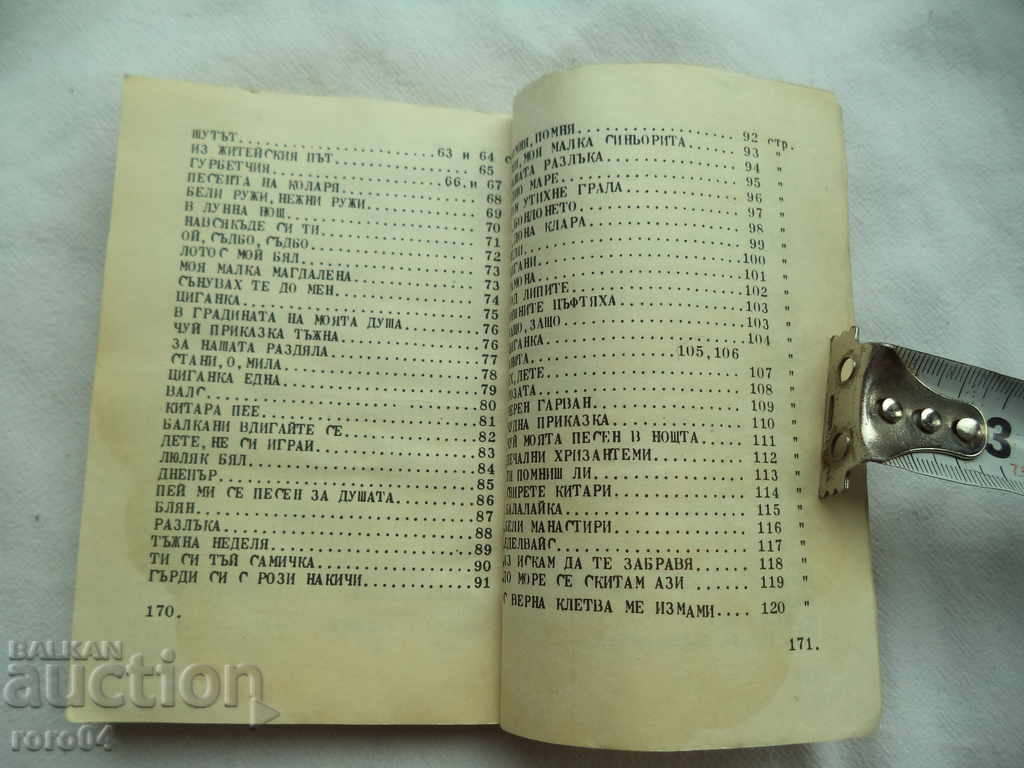 ШУТЪТ.
ИЗ ЖИТЕЙСКИЯ ПЪТ. 63 и 64
ГУРБЕТЧИЯ. 65
ПЕСЕНТА НА КОЛАРЯ 66.и 67
БЕЛИ РУЖИ, НЕЖНИ РУЖИ. 68
В ЛУННА НОЩ. 69
НАВСЯКЪДЕ СИ ТИ. 70
ОЙ, СЪДБО, СЪДБО 71
ЛОТОС МОЙ БЯЛ. 72
МОЯ МАЛКА МАГДАЛЕНА 73
СЪНУВАХ ТЕ ДО МЕН. 73
ЦИГАНКА. 74
В ГРАДИНАТА НА МОЯТА ДУША 75
ЧУЙ ПРИКАЗКА ТЪЖНА 76
ЗА НАШАТА РАЗДЯЛА 76
СТАНИ, О, МИЛА. 77
ЦИГАНКА ЕДНА 78
ВАЛС 79
КИТАРА ПЕЕ 80
БАЛКАНИ ВДИГАЙТЕ СЕ 81
ЛЕТЕ, НЕ СИ ИГРАЙ 82
ЛЮЛЯК БЯЛ. 83
ДНЕПЪР. 84
ПЕЙ МИ СЕ ПЕСЕН ЗА ДУШАТА. 85
БЛЯН 86
РАЗЛЪКА 87
ТЪЖНА НЕДЕЛЯ 88
ТИ СИ ТЪЙ САМИЧКА. 89
ГЪРДИ СИ С РОЗИ НАКИЧИ. 90
91
170.
ПОМНЯ 92 стр.
МОЯ МАЛКА СИНЬОРИТА 93 "
РАЗЛЪКА 94 "
МАРЕ 95 "
УТИХНЕ ГРАДА 96 "
97 "
КЛАРА 98 "
99 "
100 "
101 "
ЛИПИТЕ 102 "
ЦЪФТЯХА 103 "
ЗАЩО 103 "
104 "
105,106 "
ЛЕТЕ 107 "
108 "
ГАРВАН 109 "
ПРИКАЗКА 110 "
МОЯТА ПЕСЕН В НОЩТА 111 "
ХРИЗАНТЕМИ 112 "
ПОМНИШ ЛИ 113 "
КИТАРИ 114 "
БАЛАЛАЙКА 115 "
МАНАСТИРИ 116 "
117 "
ИСКАМ ДА ТЕ ЗАБРАВЯ 118 "
МОРЕ СЕ СКИТАМ АЗИ 119 "
ВЕРНА КЛЕТВА МЕ ИЗМАМИ 120 "
171.
3
BALKAN
auction
roro04